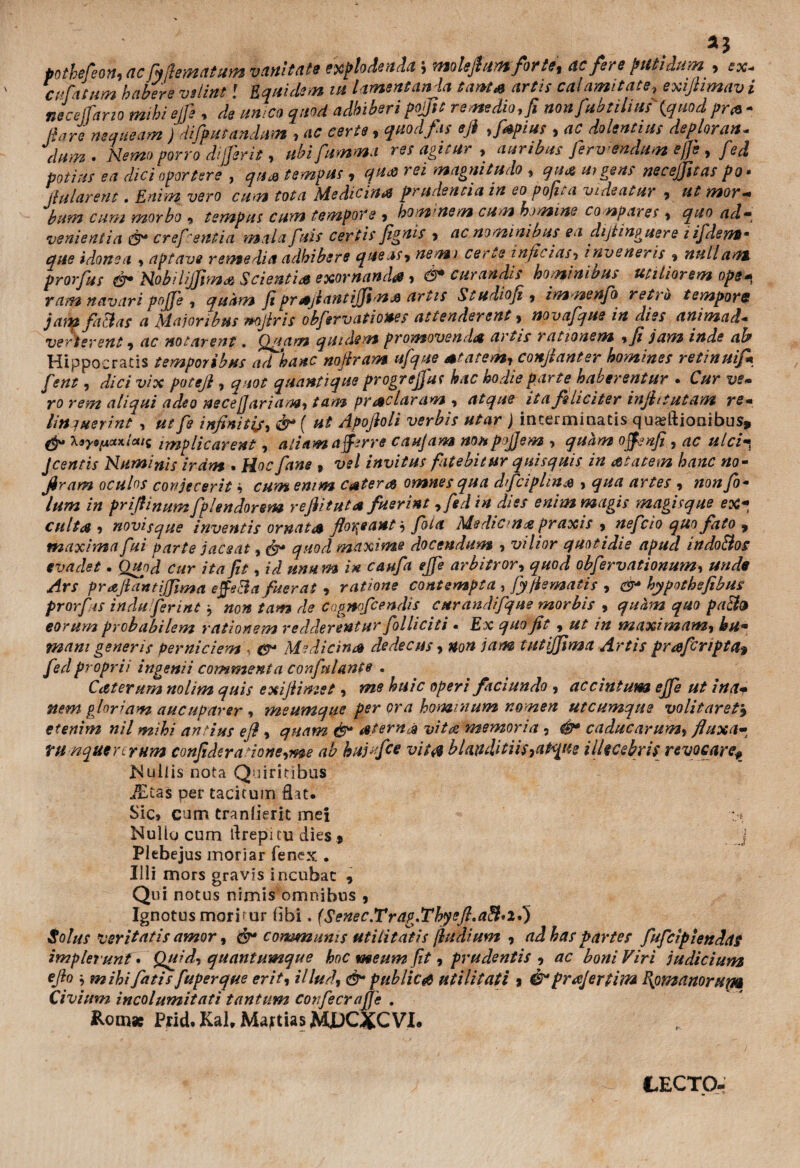 23
potheseon, ac systematum vanitate explodenda; molestum forte, ac fere putidum, ex-
cusatum habere velint! Equidem in lamentanda tanta artis calamitate, existimavi
necessario mihi esse, de unico quod adhiberi possit remedio, si non subtilius (quod præ-
stare nequeam) disputandum, ac certe, quod fas est, sæpius, ac dolentius deploran-
dum. Nemo porro disserit, ubi summa res agitur, auribus serviendum esse, sed
potius ea dici oportere, quæ tempus, quæ rei magnitudo, quæ urgens necessitas po-
stularent. Enim vero cum tota Medicinæ prudentia in eo posita videatur, ut mor-
bum cum morbo, tempus cum tempore, hominem cum homine compares, quo ad-
venientia & crescentia mala suis certis signis, ac nominibus ea distinguere iisdem-
que idonea, aptave remedia adhibere queas, nemi certe inficias, inveneris, nullam
prorsus & Nobilissimæ Scientiæ exornandæ, & curandis hominibus utiliorem ope-
ram navari posse, quàm si præstantissimæ artis Studiosi, immenso retrò tempore
jam factas a Majoribus nostris observationes attenderent, novasque in dies animad-
verterent, ac notarent. Quam quidem promovendæ artis rationem, si jam inde ab
Hippocratis temporibus ad hanc nostram usque ætatem, constanter homines retinuis-
sent, dici vix potest, quot quantique progressus hac hodie parte haberentur. Cur ve-
ro rem aliqui adeo necessariam, tam præclaram, atque ita feliciter institutam re-
linquerint, ut se infinitis, & (ut Apostoli verbis utar) interminatis quæstionibus,
& λογομαχίαις implicarent, aliam afferre causam non possem, quàm offensi, ac ulci-
scentis Numinis iram. Hoc sane, vel invitus fatebitur quisquis in ætatem hanc no-
stram oculos conjecerit; cum enim cæteræ omnes qua disciplinæ, qua artes, non so-
lum in pristinum splendorem restitutæ fuerint, sed in dies enim magis magisque ex-
cultæ, novisque inventis ornatæ floreant; sola Medicinæ praxis, nescio quo fato,
maxima sui parte jaceat, & quod maxime docendum, vilior quotidie apud indoctos
evadet. Quod cur ita sit, id unum in causa esse arbitror, quod observationum, unde
Ars præstantissima effecta fuerat, ratione contempta, systematis, & hypothesibus
prorsus indulserint; non tam de cognoscendis curandisque morbis, quàm quo pacto
eorum probabilem rationem redderentur solliciti. Ex quo fit, ut in maximam, hu-
mani generis perniciem, & Medicinæ dedecus, non jam tutissima Artis præscripta,
sed proprii ingenii commenta consulante.
Cæterum nolim quis existimet, me huic operi faciundo, accintum esse ut ina-
nem gloriam aucuparer, meumque per ora hominum nomen utcumque volitaret;
etenim nil mihi antius est, quam & æterna vitæ memoria, & caducarum, fluxa-
rumque rerum consideratione, me ab hujusce vitæ blanditiis, atque illecebris revocare,
Nullis nota Quiritibus
Ætas per tacitum flat.
Sic, cum transierit mei
Nullo cum strepitu dies,
Plebejus moriar senex.
Illi mors gravis incubat,
Qui notus nimis omnibus,
Ignotus moritur sibi. (Senec.Trag.Thyest.act.2.)
Solus veritatis amor, & communis utilitatis studium, ad has partes suscipiendas
implerunt. Quid, quantumque hoc meum sit, prudentis, ac boni Viri judicium
esto; mihi satis superque erit, illud, & publicæ utilitati, & præsertim Romanorum
Civium incolumitati tantum consecrasse.
Romæ Prid. Kal. Martias MDCXCVI.
LECTO-